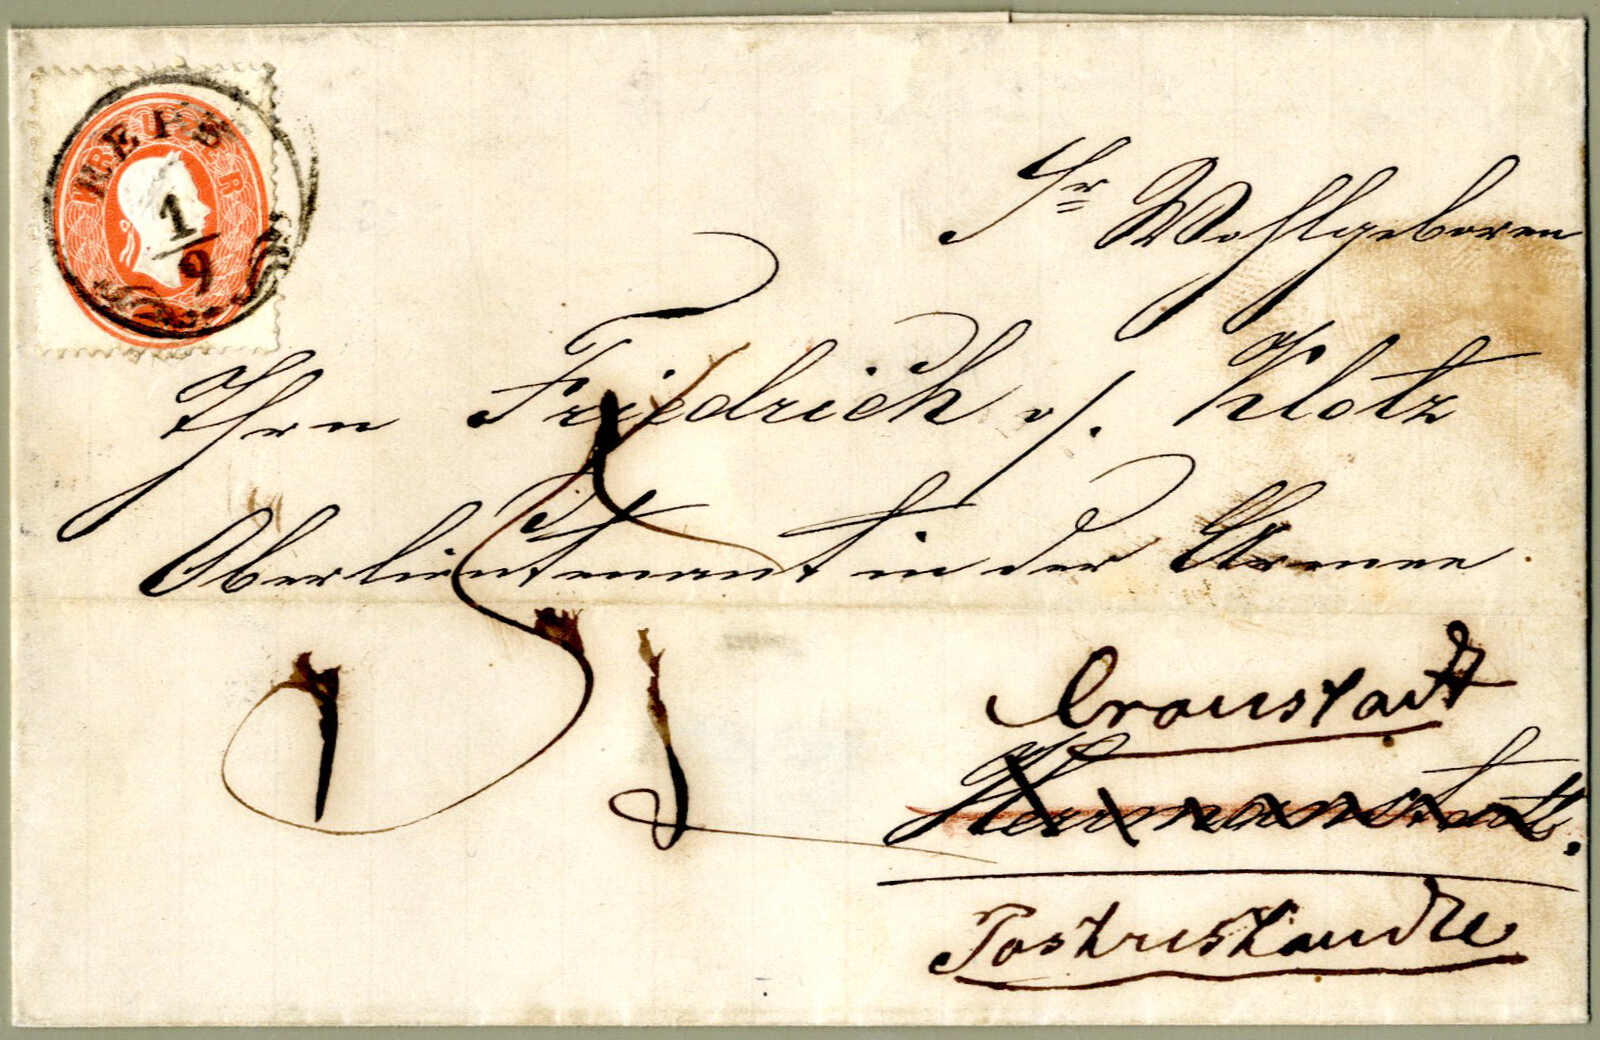 WELS
1
9
Sr Wohlgeboren
Hrn Friedrich v. Klotz
Oberlieutenant in der Armee.
Cronstadt
Hermanstadt.
Postrestandte